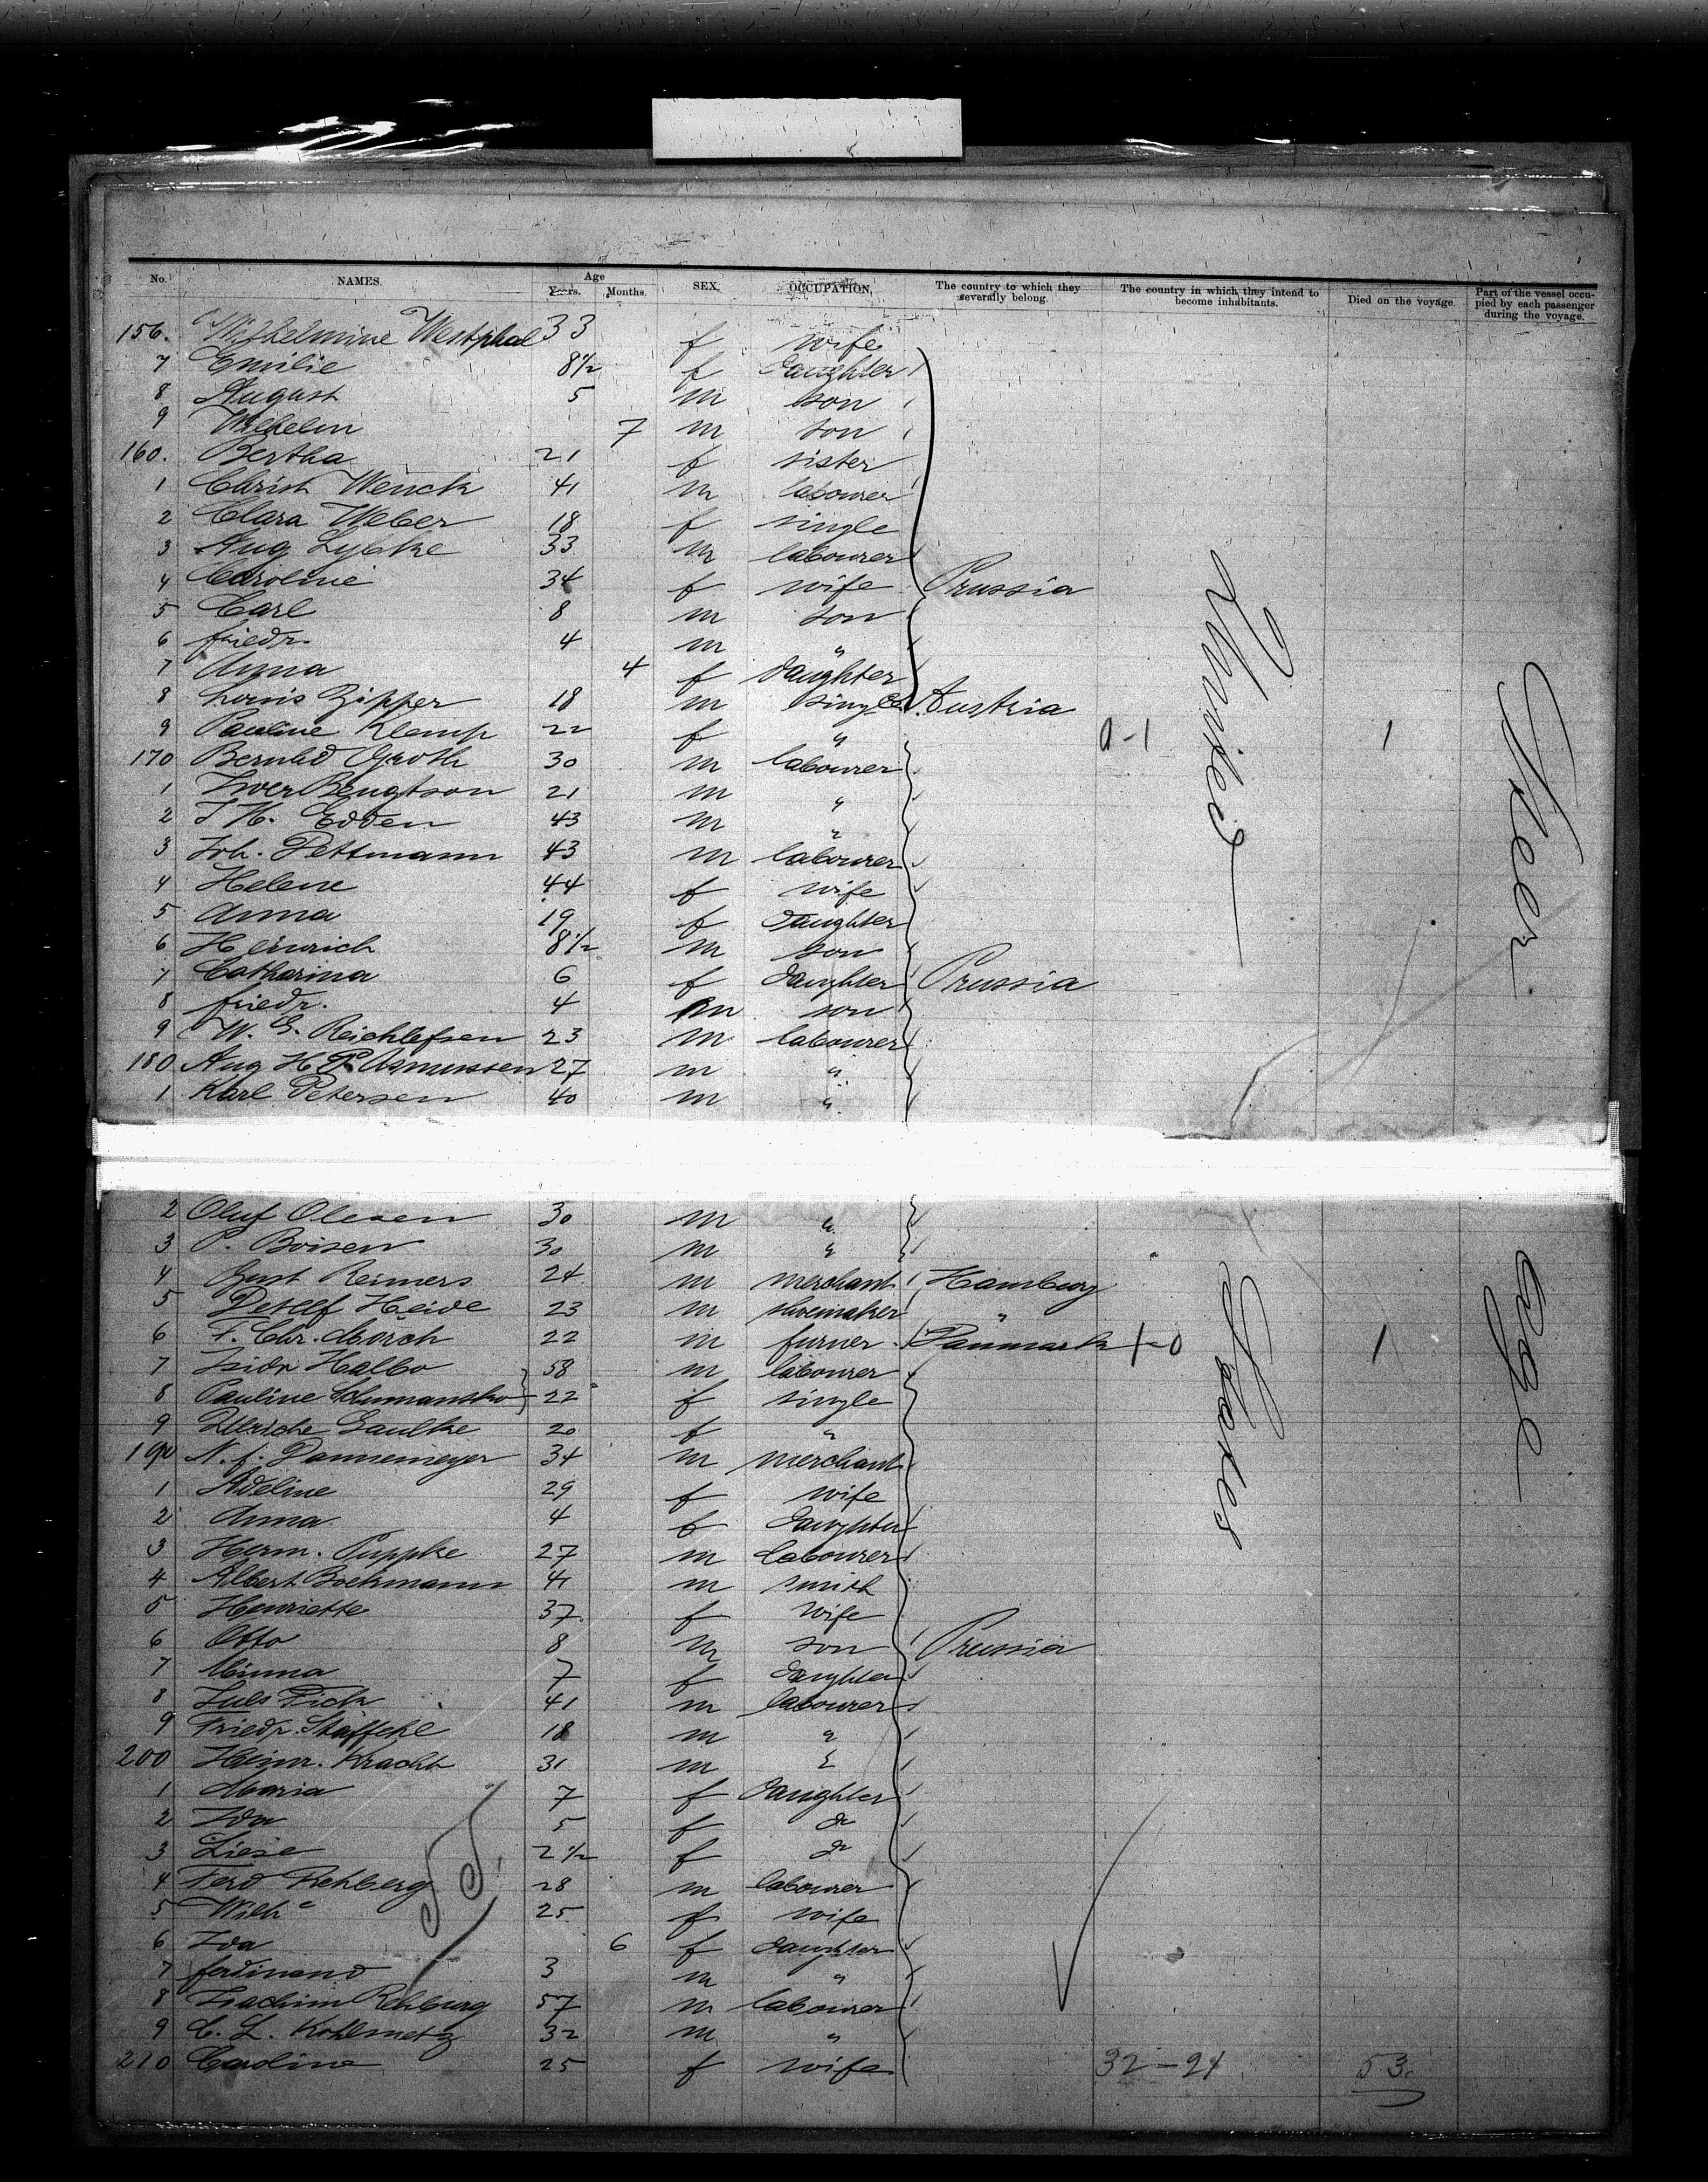 No. NAMES. Age Years. Months. SEX. OCCUPATION. The country to which they severally belong. The country in which they intend to become inhabitants. Died on the voyage. Part of the vessel occupied by each passenger during the voyage.
156. Wilhelmine Westphal 33 f wife
7 Emilie 8 1/2 f daughter
8 August 5 m son
9 Wilhelm 7 m son
160. Bertha 21 f sister
1 Christ Wenck 41 m labourer
2 Clara Weber 18 f single
3 Aug Lybke 33 m labourer
4 Caroline 34 f wife Prussia
5 Carl 8 m son
6 friedr. 4 m "
7 Anna 4 f daughter
8 Louis Zipper 18 m single Austria
9 Pauline Klemp 22 f " 0-1 1
170 Bernhd Groth 30 m labourer
1 Iver Bengtson 21 m "
2 J H. Edden 43 m "
3 Joh. Dettmann 43 m labourer
4 Helene 44 f wife
5 Anna 19 f daughter
6 Heinrich 8 1/2 m son
7 Catharina 6 f daughter Prussia
8 friedr. 4 m son
9 W. G. Reichlefsen 23 m labourer
180 Aug H P Asmussen 27 m "
1 Karl Petersen 40 m "
United
Steer
2 Oluf Olesen 30 m "
3 P. Boisen 30 m "
4 Gust Reimers 24 m merchant Hamburg
5 Detlef Heide 23 m shoemaker "
6 F. Chr. Mörch 22 m furner Danmark 1-0 1
7 Isidr Halbo 58 m labourer
8 Pauline 22 f single
9 Ulricke Gaulke 20 f "
190 N. f. Dannemeyer 34 m merchant
1 Adeline 29 f wife
2 Anna 4 f daughter
3 Herm. Puppke 27 m labourer
4 Albert Bockmann 41 m smith
5 Henriette 37 f wife
6 Otto 8 m son Prussia
7 Minna 7 f daughter
8 Juls Fick 41 m labourer
9 Friedr. Staffeke 18 m "
200 Heinr. Kracht 31 m "
1 Maria 7 f daughter
2 Ida 5 f do
3 Liese 2 1/2 f do
4 Ferd Rehberg 28 m labourer
5 Wilh e 25 f wife
6 Ida 6 f daughter
7 ferdinand 3 m "
8 Joachim Rehberg 57 m labourer
9 C. L. Kohlmetz 32 m "
210 Caroline 25 f wife 32-21 53
States
age